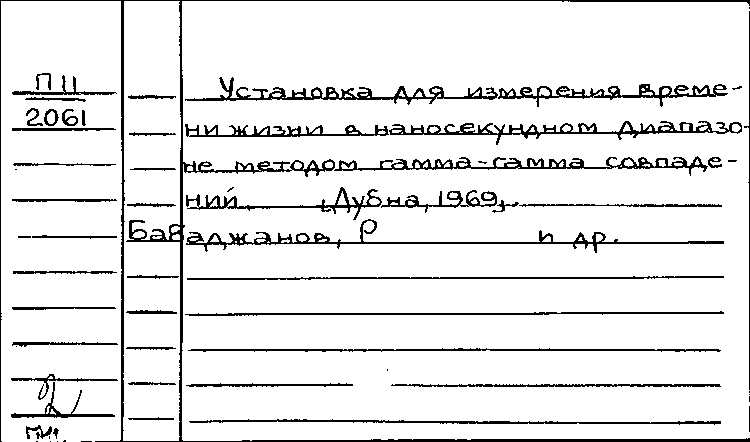 П 11
2061
Установка для измерения време-
ни жизни в наносекундном диапазо-
не методом гамма-гамма совпаде-
ний. [Дубна, 1969].
Бабаджанов, Р и др.